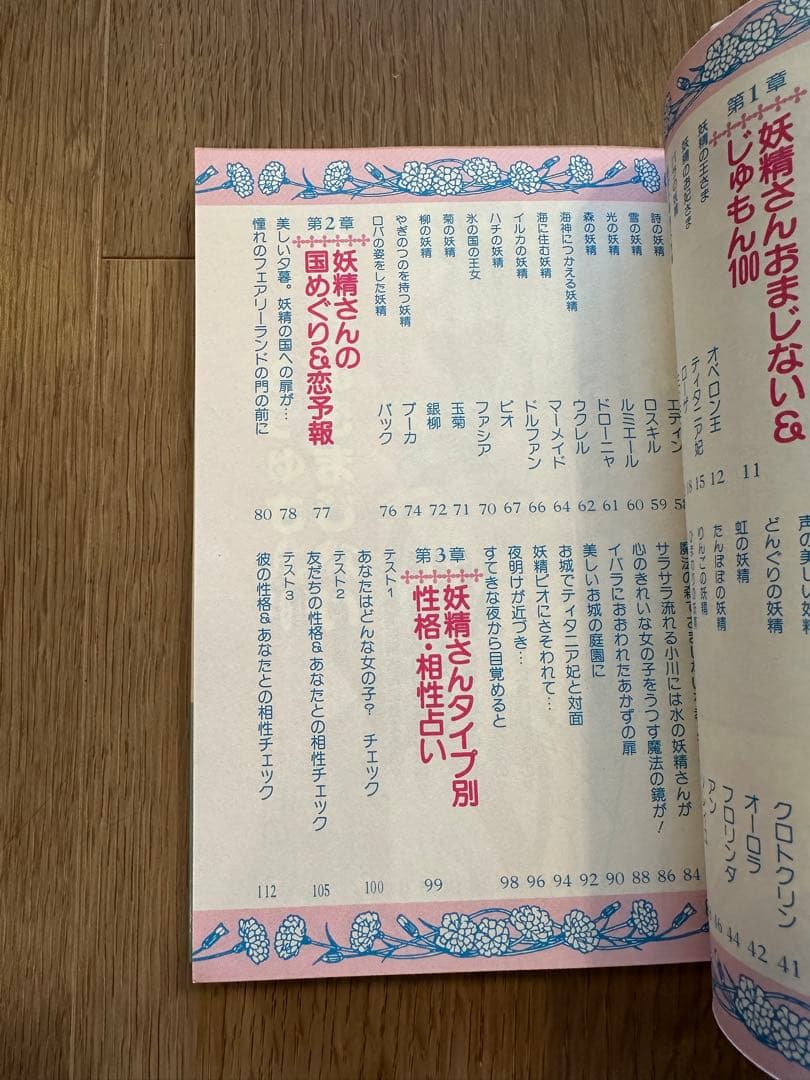 第1章
妖精さんおまじない&
じゅもん100
11
妖精の王さま オベロン王 12
妖精のお妃さま ティタニア妃 15
18
どんぐりの妖精 クロトクリン 41
虹の妖精 オーロラ 42
たんぽぽの妖精 フロリンダ 44
りんごの妖精 アン 46
詩の妖精 エディン 58
雪の妖精 ロスキル 59
光の妖精 ルミエール 60
森の妖精 ドローニャ 61
海神につかえる妖精 ウクレル 62
海に住む妖精 マーメイド 64
イルカの妖精 ドルファン 66
ハチの妖精 ピオ 67
氷の国の王女 ファシア 70
菊の妖精 玉菊 71
柳の妖精 銀柳 72
やぎのつのを持つ妖精 プーカ 74
ロバの姿をした妖精 パック 76
第2章
妖精さんの
国めぐり&恋予報
77
美しい夕暮。妖精の国への扉が… 78
憧れのフェアリーランドの門の前に 80
84
サラサラ流れる小川には水の妖精さんが 86
心のきれいな女の子をうつす魔法の鏡が! 88
イバラにおおわれたあかずの扉 90
美しいお城の庭園に 92
お城でティタニア妃と対面 94
妖精ピオにさそわれて… 96
夜明けが近づき…
すてきな夜から目覚めると 98
第3章
妖精さんタイプ別
性格・相性占い
99
テスト1
あなたはどんな女の子? チェック 100
テスト2
友だちの性格&あなたとの相性チェック 105
テスト3
彼の性格&あなたとの相性チェック 112